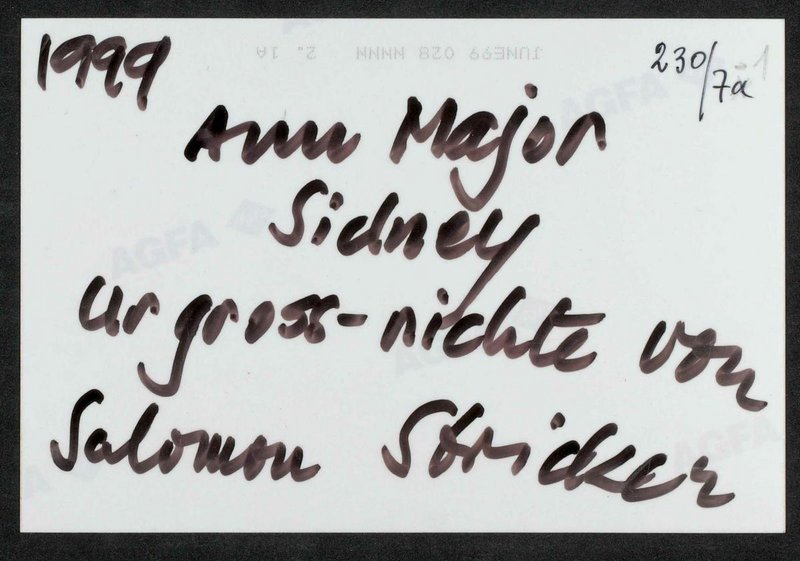 1999
JUNE99 028 NNNN 2. 1A
230/7a
-1
Ann Major
Sidney
Urgross-nichte von
Salomon Stricker
AGFA
AGFA
AGFA
AGFA